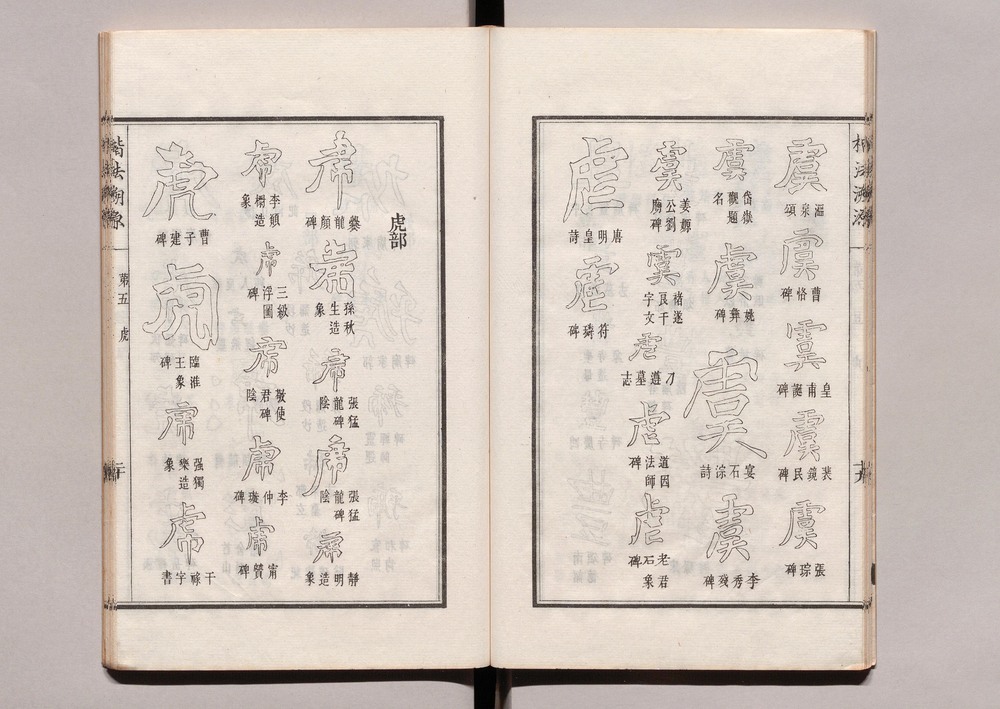 楷法溯源
虞 溫泉頌
虞 曹恪碑
虞 皇甫誕碑
虞 裴鏡民碑
虞 張琮碑
虞 岱嶽觀題名
虞 姚彝碑
虞 宴石淙詩
虞 李秀殘碑
虞 姜嫄公劉廟碑
虞 褚遂良千字文
虐 刀遵墓志
虐 道因法師碑
虐 老君石象碑
虐 唐明皇詩
虐 符璘碑
虎部
虎 爨龍顏碑
虎 孫秋生造象
虎 張猛龍碑陰
虎 張猛龍碑陰
虎 靜明造象
虎 造象
虎 三級浮圖碑
虎 敬使君碑陰
虎 李仲璇碑
虎 甯贙碑
虎 曹子建碑
虎 臨淮王象碑
虎 强獨樂造象
虎 干祿字書
楷法溯源
第五 虎